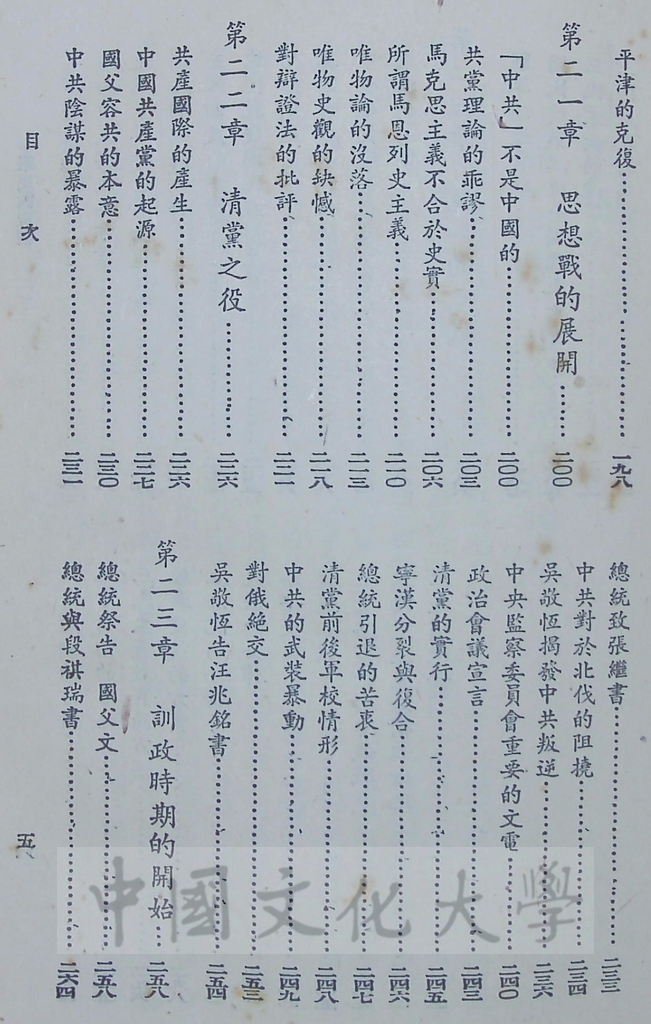 平津的克復……一九八
第二一章　思想戰的展開……二〇〇
「中共」不是中國的……二〇〇
共黨理論的乖謬……二〇三
馬克思主義不合於史實……二〇六
所謂馬恩列史主義……二一〇
唯物論的沒落……二一三
唯物史觀的缺憾……二一八
對辯證法的批評……二二一
第二二章　清黨之役……二二六
共產國際的產生……二二六
中國共產黨的起源……二二七
國父容共的本意……二三〇
中共陰謀的暴露……二三一
總統致張繼書……二三三
中共對於北伐的阻撓……二三四
吳敬恆揭發中共叛逆……二三六
中央監察委員會重要的文電……二四〇
政治會議宣言……二四三
清黨的實行……二四五
寧漢分裂與復合……二四六
總統引退的苦衷……二四七
清黨前後軍校情形……二四八
中共的武裝暴動……二四九
對俄絕交……二五三
吳敬恆告汪兆銘書……二五四
第二三章　訓政時期的開始……二五八
總統祭告　國父文……二五八
總統與段祺瑞書……二六四
目　次
五
中國文化大學